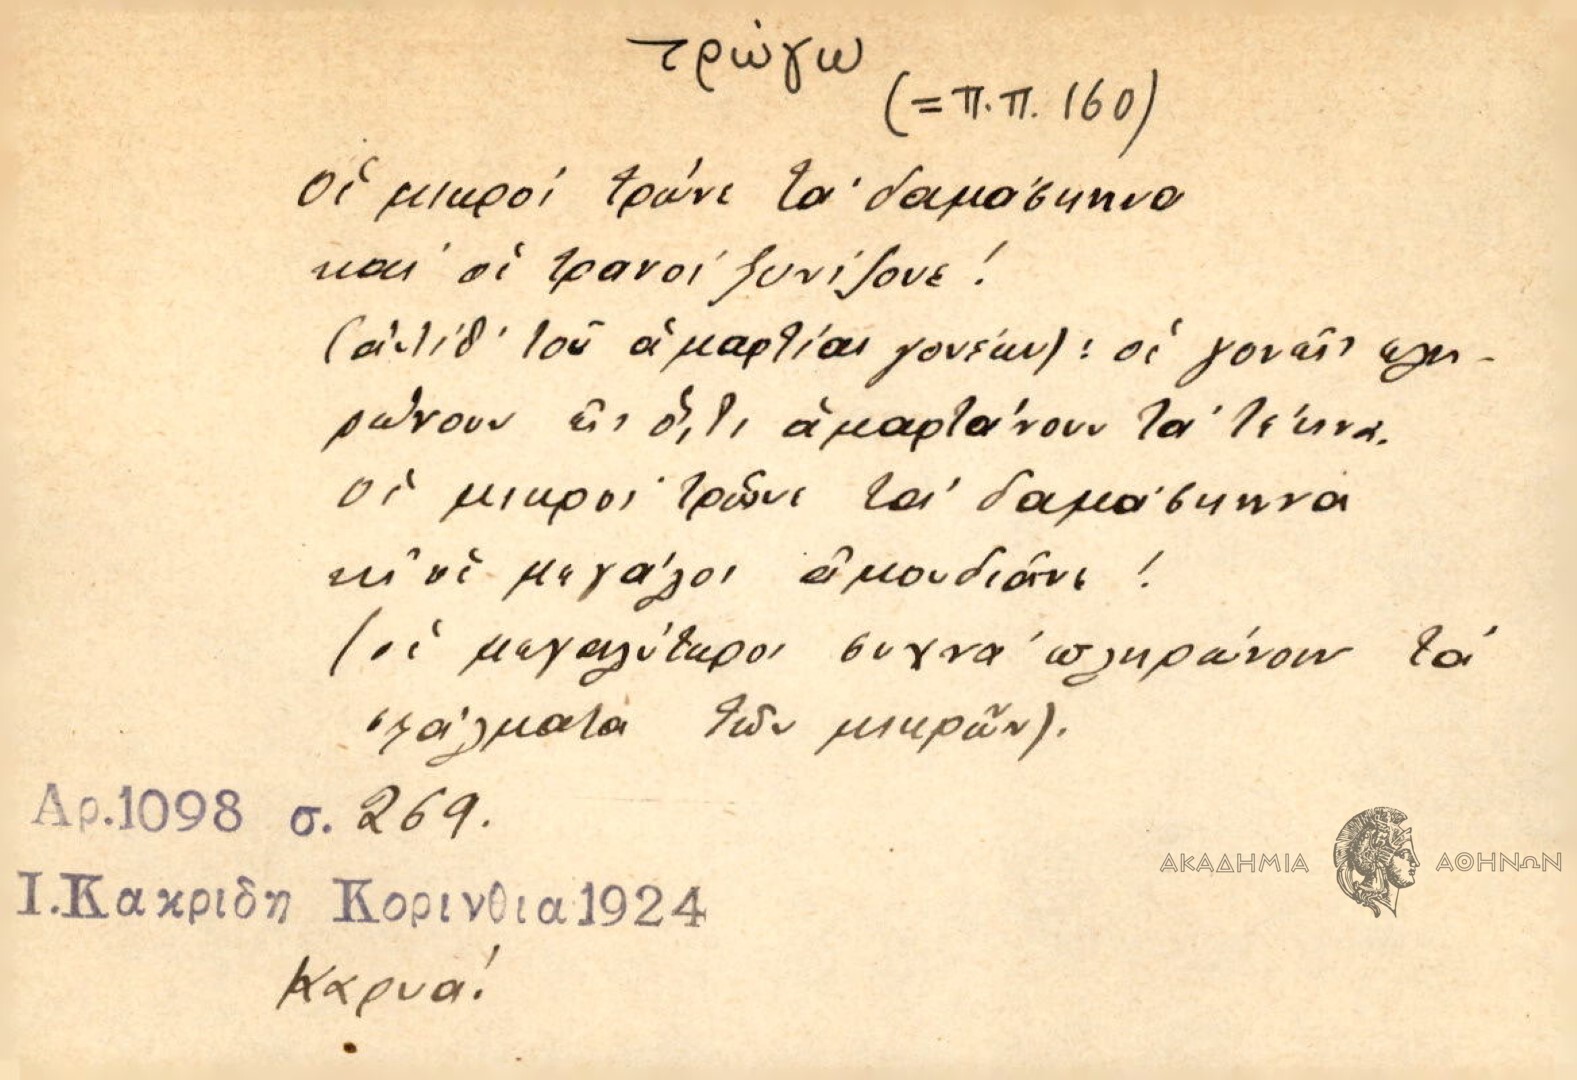 τρώγω
(=π.π. 160)
Οἱ μικροί τρῶνε τά δαμάσκηνα
καί οἱ τρανοί ξυνίζουνε!
(ἀντίθ' τοῦ ἁμαρτίαι γονέων): οἱ γονεῖς πλη-
ρώνουν εἰς ὅ,τι ἁμαρτάνουν τά τέκνα.
Οἱ μικροί τρῶνε τά δαμάσκηνα
κι οἱ μεγάλοι αἱμουδιᾶνε!
(οἱ μεγαλύτεροι συχνά πληρώνουν τά
σφάλματα τῶν μικρῶν).
Αρ.1098 σ. 269.
Ι.Κακριδη Κορινθια1924
Καρυά!
ΑΚΑΔΗΜΙΑ ΑΘΗΝΩΝ